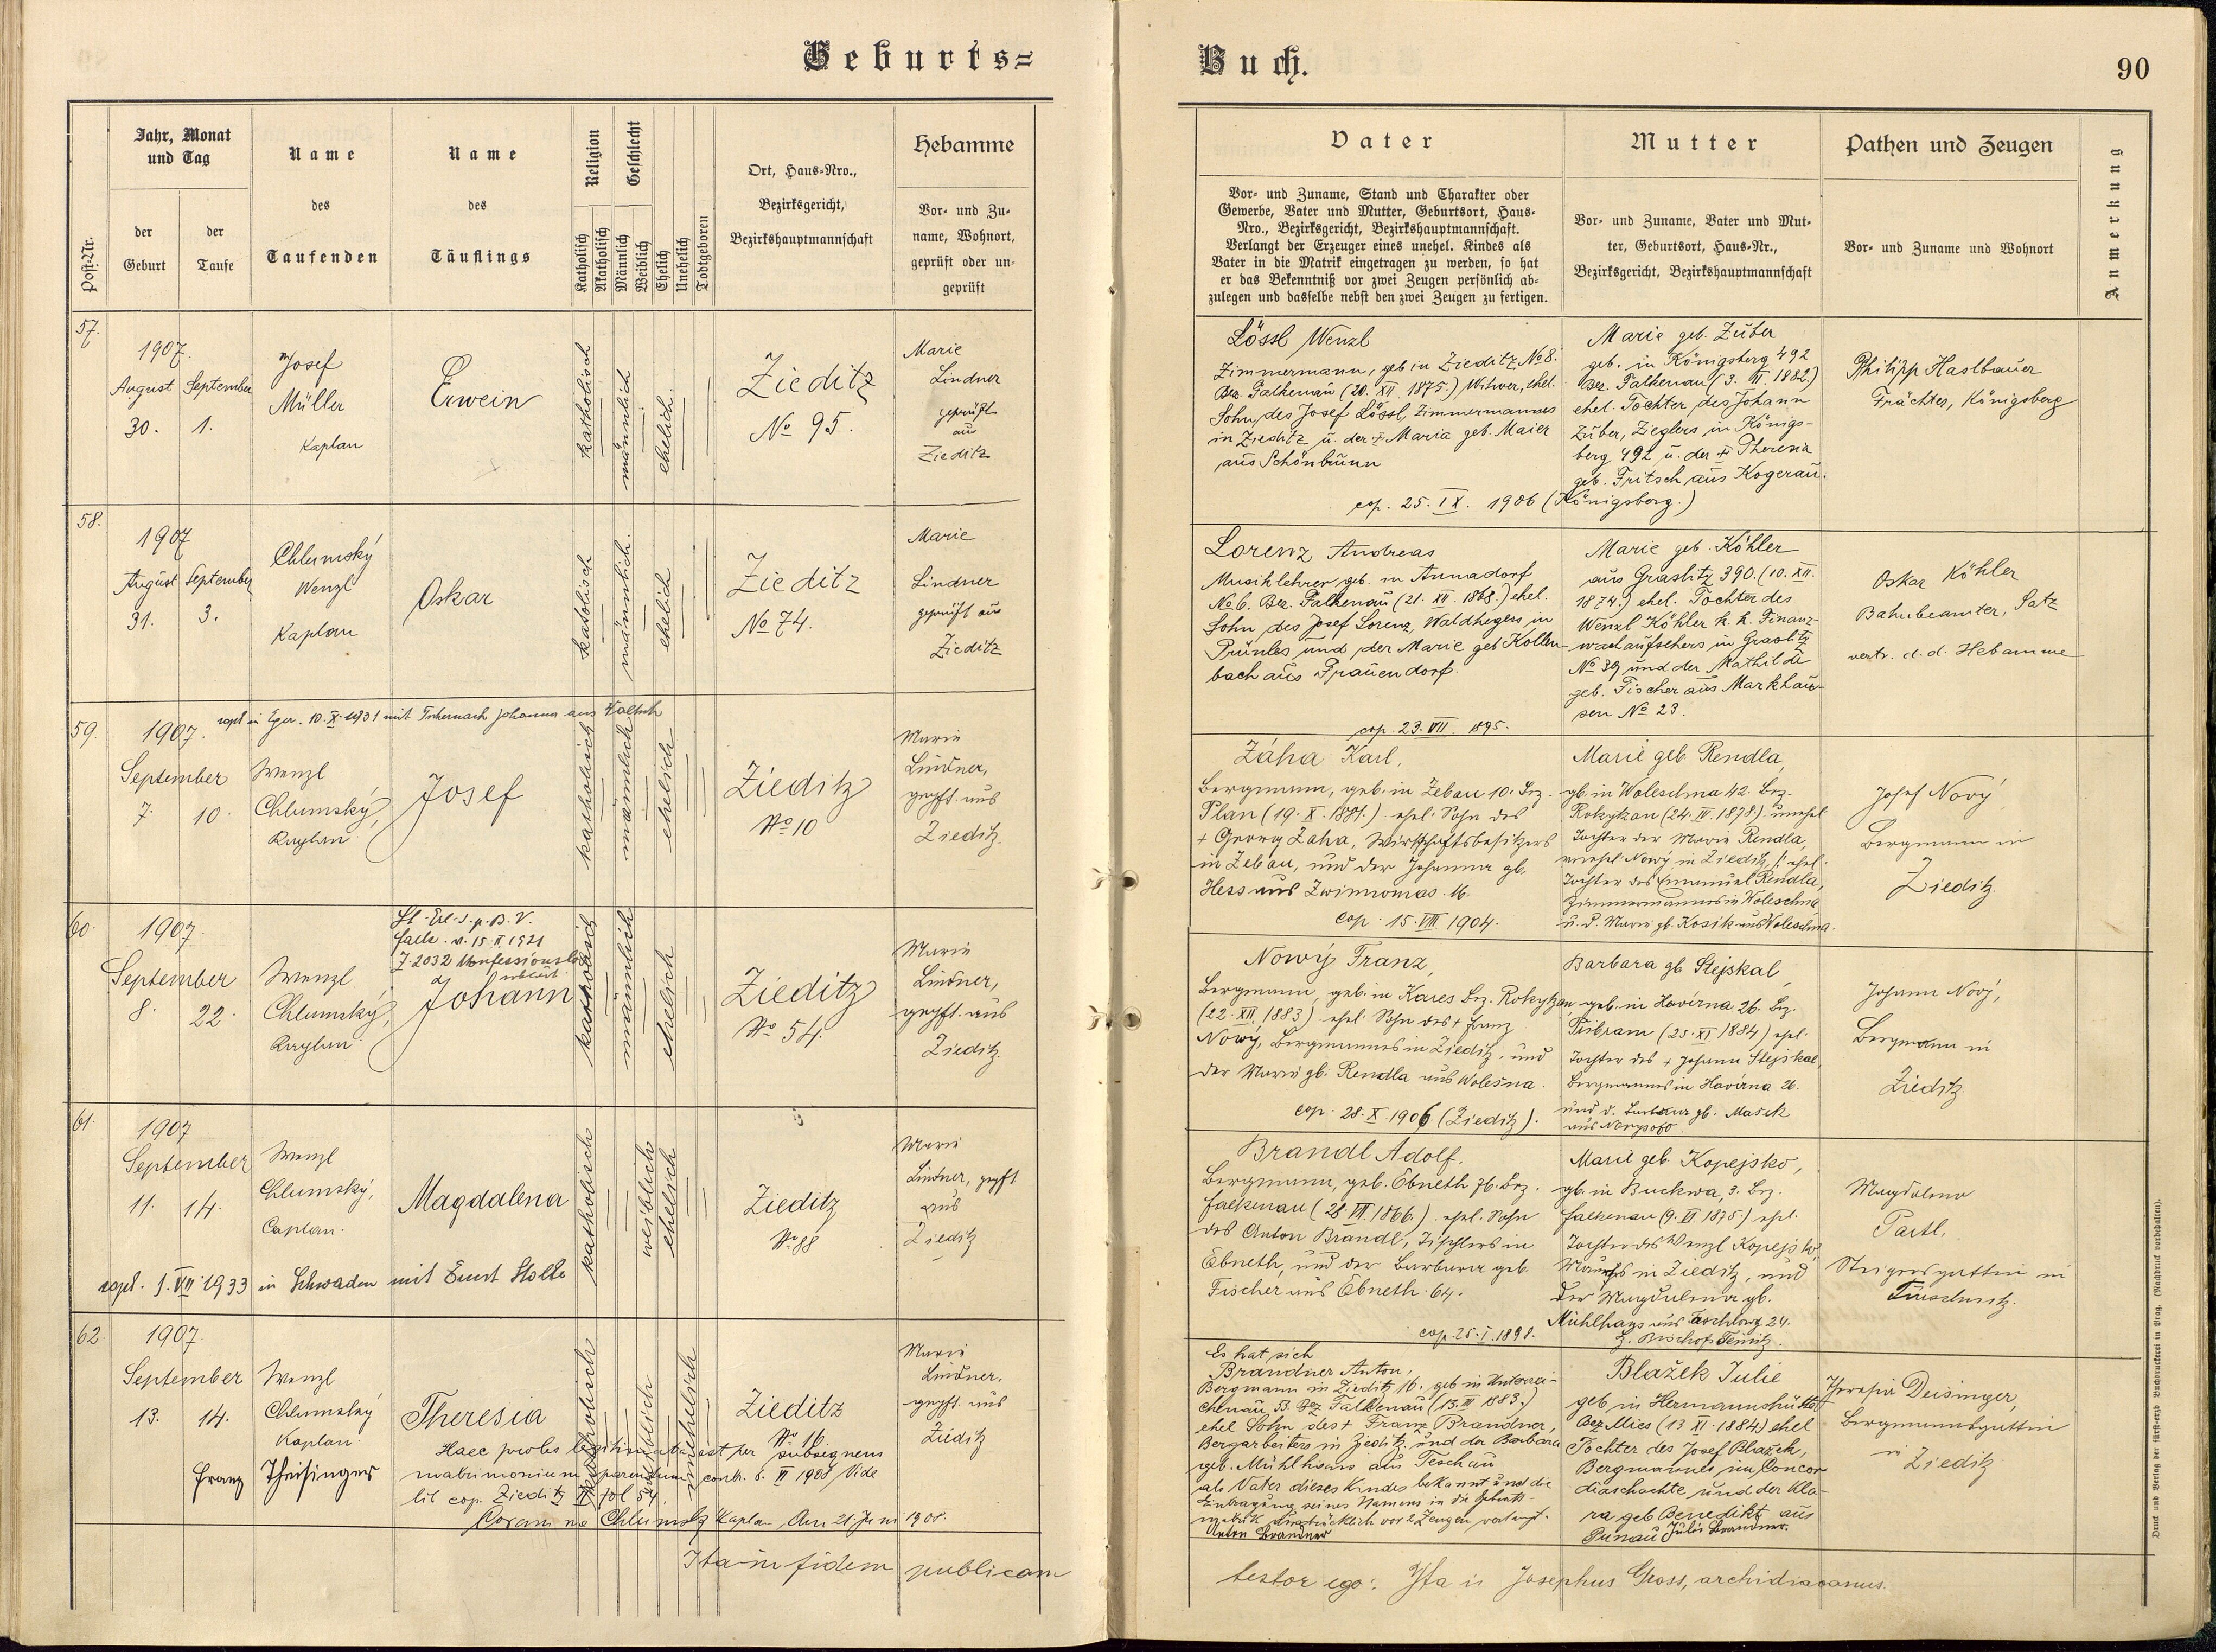 Geburts=
Buch.
90
Post-Nr.
Jahr, Monat
und Tag
der
Geburt
der
Taufe
Name
des
Taufenden
Name
des
Täuflings
Religion
Katholisch
Akatholisch
Geschlecht
Männlich
Weiblich
Ehelich
Unehelich
Todtgeboren
Ort, Haus-Nro.,
Bezirksgericht,
Bezirkshauptmannschaft
Hebamme
Vor- und Zu-
name, Wohnort,
geprüft oder un-
geprüft
Vater
Vor- und Zuname, Stand und Charakter oder
Gewerbe, Vater und Mutter, Geburtsort, Haus-
Nro., Bezirksgericht, Bezirkshauptmannschaft.
Verlangt der Erzeuger eines unehel. Kindes als
Vater in die Matrik eingetragen zu werden, so hat
er das Bekenntniß vor zwei Zeugen persönlich ab-
zulegen und dasselbe nebst den zwei Zeugen zu fertigen.
Mutter
Vor- und Zuname, Vater und Mut-
ter, Geburtsort, Haus-Nr.,
Bezirksgericht, Bezirkshauptmannschaft
Pathen und Zeugen
Vor- und Zuname und Wohnort
Anmerkung
57.
1907.
August September
30. 1.
Josef
Müller
Kaplan
Erwein
katholisch
männlich
ehelich.
Zieditz
No 95.
Marie
Lindner
geprüft
aus
Zieditz
Lössl Wenzl
Zimmermann, geb in Zieditz No 8.
Bez. Falkenau (20. XII 1875.) Witwer, ehel.
Sohn des Josef Lössl Zimmermannes
in Zieditz u. der + Maria geb. Maier
aus Schönbrunn
cop. 25. IX. 1906 (Königsberg.)
Marie geb. Zuber
geb. in Königsberg 492
Bez. Falkenau (3. VI. 1882.)
ehel. Tochter des Johann
Zuber, Zieglers in Königs-
berg 492 u. der + Theresia
geb. Fritsch aus Kogerau.
Philipp Hastbauer
Frächter, Königsberg
58.
1907
August September
31. 3.
Chlumský
Wenzl
Kaplan
Oskar
katolisch
männlich.
ehelich
Zieditz
No 74.
Marie
Lindner
geprüft aus
Zieditz
Lorenz Andreas
Musiklehrer geb. in Annadorf
No 6. Bez. Falkenau (21. XII. 1868.) ehel.
Sohn des Josef Lorenz, Waldhegers in
Prünles und der Marie geb Kollen-
bach aus Frauendorf.
cop. 23. VII. 1895.
Marie geb. Köhler
aus Graslitz 390. (10. XII.
1874.) ehel. Tochter des
Wenzl Köhler k. k. Finanz-
wachaufsehers in Graslitz
No 39 und der Mathilde
geb. Fischer aus Markhau-
sen No 23.
Oskar Köhler
Bahnbeamter, Satz
vertr. d. d. Hebamme
59.
copl in Eger. 10. X. 1931 mit Tschernach Johanna aus Kaltsch
1907.
September
7. 10.
Wenzl
Chlumský,
Kaplan
Josef
katholisch
männlich
ehelich
Zieditz
No 10
Marie
Lindner,
geprft. aus
Zieditz.
Záha Karl,
Bergmann, geb. in Zebau 10. Bez.
Plan (19. X. 1881.) ehel. Sohn des
+ Georg Zaha, Wirtschaftsbesitzers
in Zebau, und der Johanna gb.
Hess aus Zwinnomas 16.
cop. 15. VIII. 1904.
Marie geb. Rendla,
gb. in Woleschna 42. Bez.
Rokytzan (24. IV. 1878) unehel
Tochter der Marie Rendla,
verehel. Nowý in Zieditz, /: ehel.
Tochter des Emanuel Rendla,
Zimmermannes in Woleschna
u. d. Marie gb. Kosik aus Woleschna.
Josef Nový
Bergmann in
Zieditz.
60.
1907.
September
8. 22.
Wenzl
Chlumský,
Kaplan
Falk. v. 15. X. 1921
Z. 2032 Konfessionslos
erklärt.
Johann
katholisch
männlich
ehelich
Zieditz
No 54.
Marie
Lindner,
geprft. aus
Zieditz.
Nowý Franz,
Bergmann, geb. in Kares Bez. Rokytzan
(22. XII. 1883) ehel. Sohn des + Franz
Nowý, Bergmannes in Zieditz, und
der Marie gb. Rendla aus Wolešna.
cop. 28. X. 1906 (Zieditz).
Barbara gb Stejskal,
geb. in Havírna 26. Bez.
Pribram (25. XI 1884) ehel.
Tochter des + Johann Stejskal,
Bergmannes in Havírna 26.
und d. Barbara gb. Mašek
Johann Nový,
Bergmann in
Zieditz
61.
1907
September
11. 14.
Wenzl
Chlumský,
Caplan.
Magdalena
katholisch
weiblich
ehelich
Zieditz
No 88
Marie
Lindner, geprft
aus
Zieditz
copl. 1. VII 1933 in Schwaden mit Ernst Stolle
Brandl Adolf.
Bergmann, geb. Ebneth 76. Bez.
Falkenau (28. VII. 1866.) ehel. Sohn
des Anton Brandl, Tischlers in
Ebneth, und der Barbara geb.
Fischer aus Ebneth 64.
cop. 25. I. 1898.
Marie geb. Kopejsko,
gb. in Buckwa, 3. Bez.
Falkenau (9. VI 1875) ehel.
Tochter des Wenzl Kopejsko,
in Zieditz, und
der Magdalena gb.
Mühlhans aus Taschlowitz 24.
Bischofsteinitz.
Magdalena
Partl,
Steigersgattin in
62.
1907.
September
13. 14.
Wenzl
Chlumský
Kaplan
Franz Theisinger
Theresia
katholisch
weiblich
unehelich
Zieditz
No 16
Marie
Lindner,
geprft. aus
Zieditz
Haec proles legitimata est per subsequens
matrimonium parentum contr. 6. VI 1908 Vide
lib cop. Zieditz II fol 54.
Coram me Chlumsky Kaplan, Am 21. Juni 1908.
Es hat sich
Brandner Anton,
Bergmann in Zieditz 16. geb in Unterrei-
chenau 53. Bez Falkenau (13. III 1883.)
ehel Sohn des + Franz Brandner,
Bergarbeiters in Zieditz und der Barbara
geb. Mühlhans aus Teschau
als Vater dieses Kindes bekannt und die
Eintragung seines Namens in die Geburts-
matrik ausdrücklich vor 2 Zeugen verlangt.
Anton Brandner
Blažek Julie
geb in Hermannshütte
Bez. Mies (13 XI. 1884) ehel
Tochter des Josef Blažek,
Bergmannes im Concor
diaschachte und der Kla-
ra geb Benedikt aus
Punau Julie Brandner.
Theresia Deisinger,
Bergmannsgattin
in Zieditz.
Ita in fidem publicam
testor ego: Josephus Gross, archidiaconus.
Druck und Verlag der fürsterzb. Buchdruckerei in Prag. (Nachdruck vorbehalten).